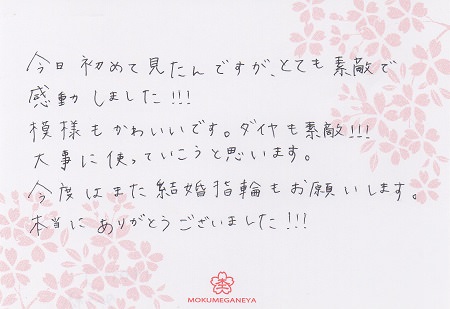 今日初めて見たんですが、とても素敵で
感動しました!!!
模様もかわいいです。ダイヤも素敵!!!
大事に使っていこうと思います。
今度はまた結婚指輪もお願いします。
本当にありがとうございました!!!
MOKUMEGANEYA